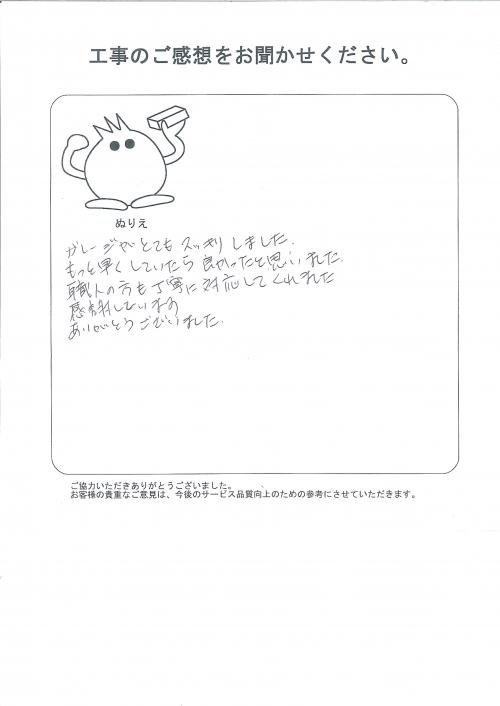 工事のご感想をお聞かせください。
ぬりえ
ガレージがとてもスッキリしました.
もっと早くしていたら良かったと思いました.
職人の方も丁寧に対応してくれました
感謝しています
ありがとうございました.
ご協力いただきありがとうございました。
お客様の貴重なご意見は、今後のサービス品質向上のための参考にさせていただきます。